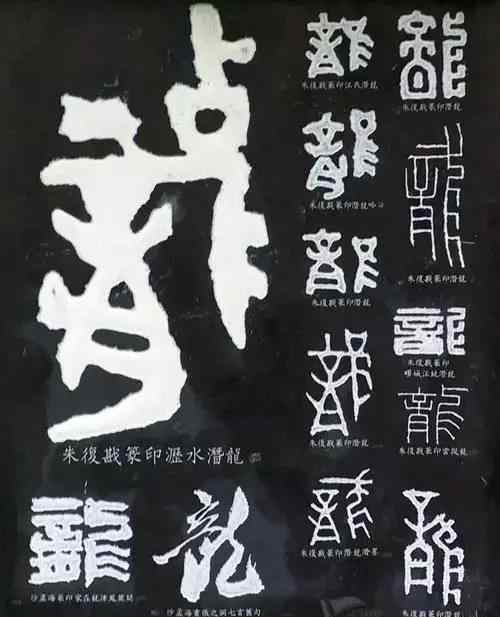 龍
朱復戡篆印瀝水潛龍
龍
朱復戡篆印江氏潛龍
龍
朱復戡篆印潛龍
龍
朱復戡篆印潛龍
龍
朱復戡篆印潛龍
龍
朱復戡篆印潛龍
龍
朱復戡篆印
龍
朱復戡篆印潛龍
龍
朱復戡篆印雲從龍
龍
朱復戡篆印潛龍
龍
龍
沙孟海篆印家在龍津鳳麓間
龍
沙孟海書儀之洞七言舊句